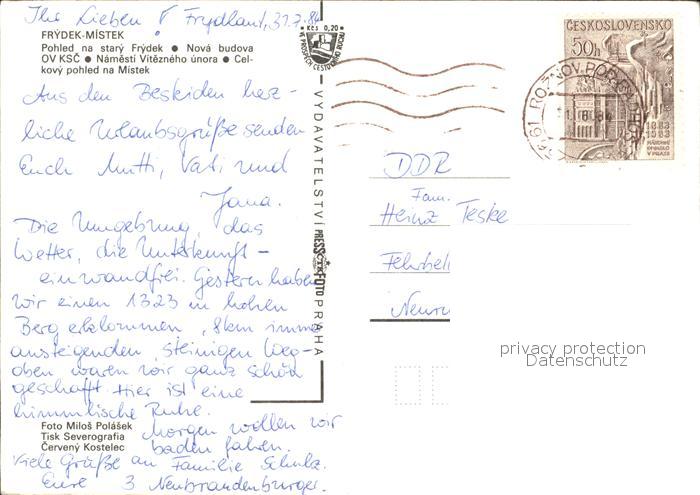 Ihr Lieben! Frydlant, 31.7.84
FRÝDEK-MÍSTEK
Pohled na starý Frýdek ● Nová budova
OV KSČ ● Náměstí Vítězného února ● Cel-
kový pohled na Místek
Aus den Beskiden herz-
liche Urlaubsgrüße senden
Euch Mutti, Vati und
Jana.
Die Umgebung, das
Wetter, die Unterkunft –
einwandfrei. Gestern haben
wir einen 1323 m hohen
Berg erklommen, 8km immer
ansteigenden, steinigen Weg-
oben waren wir ganz schön
geschafft. Hier ist eine
himmlische Ruhe.
Morgen wollen wir
baden fahren.
Viele Grüße an Familie Schulz.
Eure 3 Neubrandenburger.
Foto Miloš Polášek
Tisk Severografia
Červený Kostelec
Kčs 0,20
VE PROSPĚCH CESTOVNÍHO RUCHU
VYDAVATELSTVÍ PRESSFOTO PRAHA
ČESKOSLOVENSKO
50h
1883
1983
NÁRODNÍ
DIVADLO
V PRAZE
ROŽNOV POD RADHOŠTĚM
DDR
Fam.
Heinz Teske
Fehrbell
Neuru
privacy protection
Datenschutz